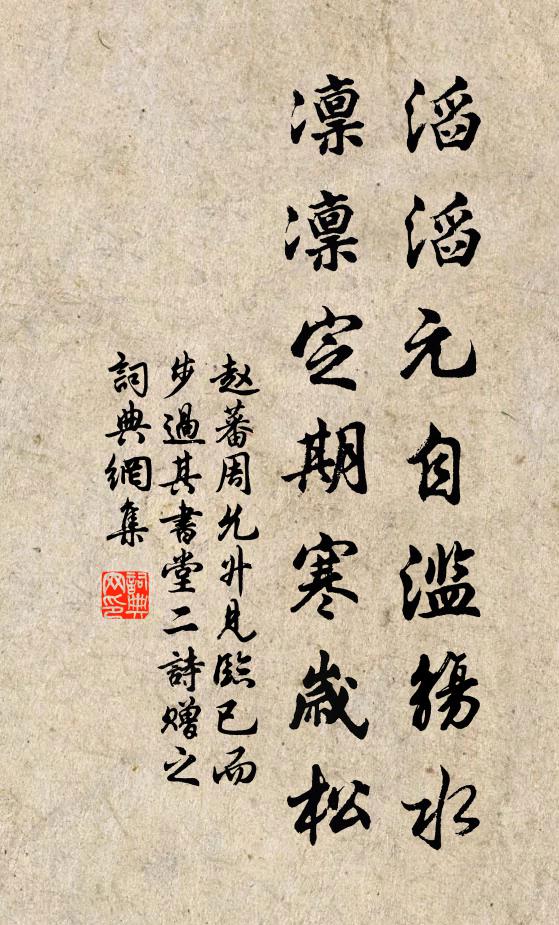 滔滔元自滥觴水
凛凛定期寒歲松
赵蕃周允升見臨已而
步過其書堂二詩赠之
詞典網集
詞典网印